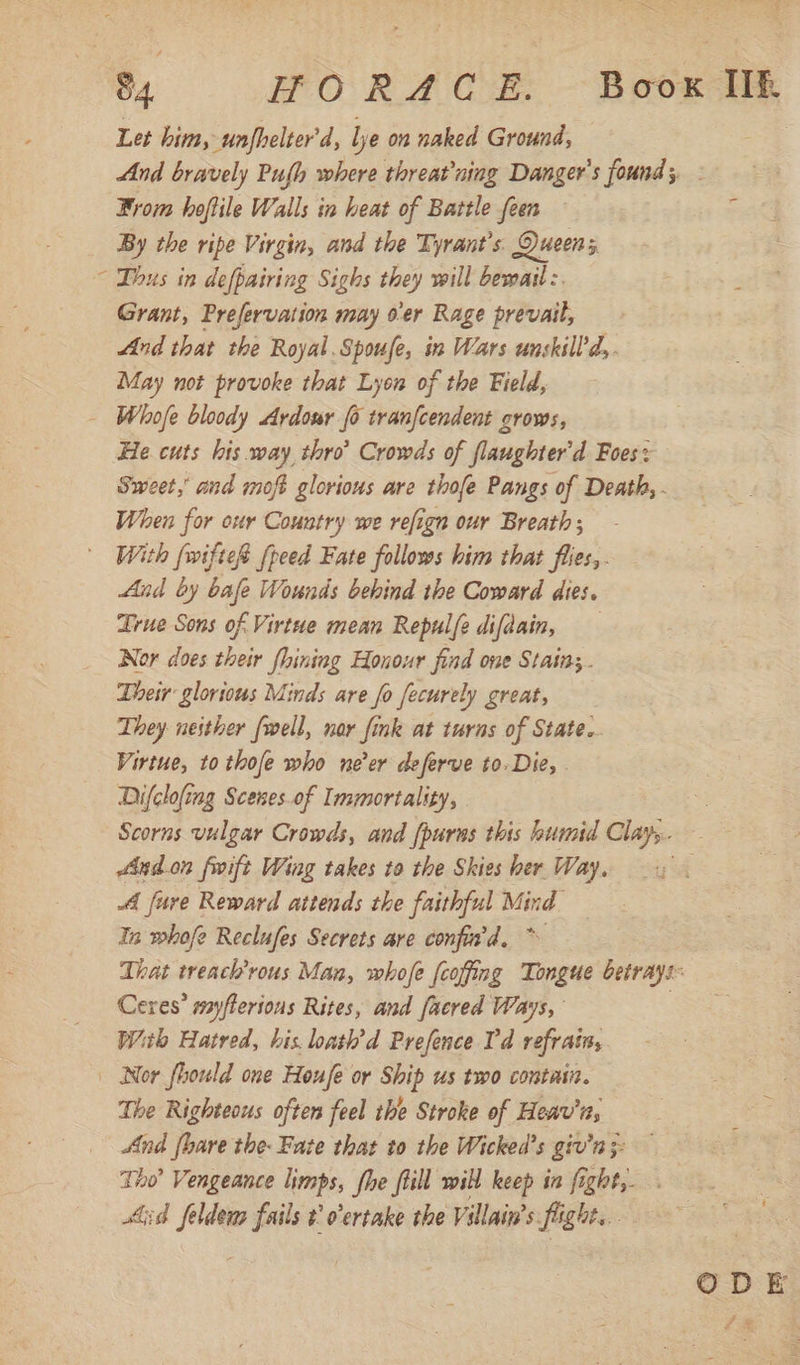 84 HORACE. Book III.
Let him, unſhelter'd, lye on naked Ground,
And bravely Puſh where threat'ning Danger's found;
From hoſtile Walls in heat of Battle ſeen
By the ripe Virgin, and the Tyrant's Queen;
Thus in deſpairing Sighs they will bewail:
Grant, Preſervation may o'er Rage prevail,
And that the Royal Spouſe, in Wars unskill'd,
May not provoke that Lyon of the Field,
Whoſe bloody Ardour ſo tranſcendent grows,
He cuts his way thro' Crowds of ſlaughter'd Foes:
Sweet, and moſt glorious are thoſe Pangs of Death,
When for our Country we reſign our Breath;
With ſwifteſt ſpeed Fate follows him that flies,
And by baſe Wounds behind the Coward dies.
True Sons of Virtue mean Repulſe diſdain,
Nor does their ſhining Honour find one Stain;
Their glorious Minds are ſo ſecurely great,
They neither ſwell, nor ſink at turns of State.
Virtue, to thoſe who ne'er deſerve to Die,
Diſcloſing Scenes of Immortality,
Scorns vulgar Crowds, and ſpurns this humid Clay,
And on ſwift Wing takes to the Skies her Way.
A ſure Reward attends the faithful Mind
In whoſe Recluſes Secrets are confin'd.
That treach'rous Man, whoſe ſcoffing Tongue betrays
Ceres' myſterious Rites, and ſacred Ways,
With Hatred, his loath'd Preſence I'd refrain,
Nor ſhould one Houſe or Ship us two contain.
The Righteous often feel the Stroke of Heav'n,
And ſhare the Fate that to the Wicked's giv'n;
Tho' Vengeance limps, ſhe ſtill will keep in ſight,
And ſeldom fails t' o'ertake the Villain's flight.
ODE